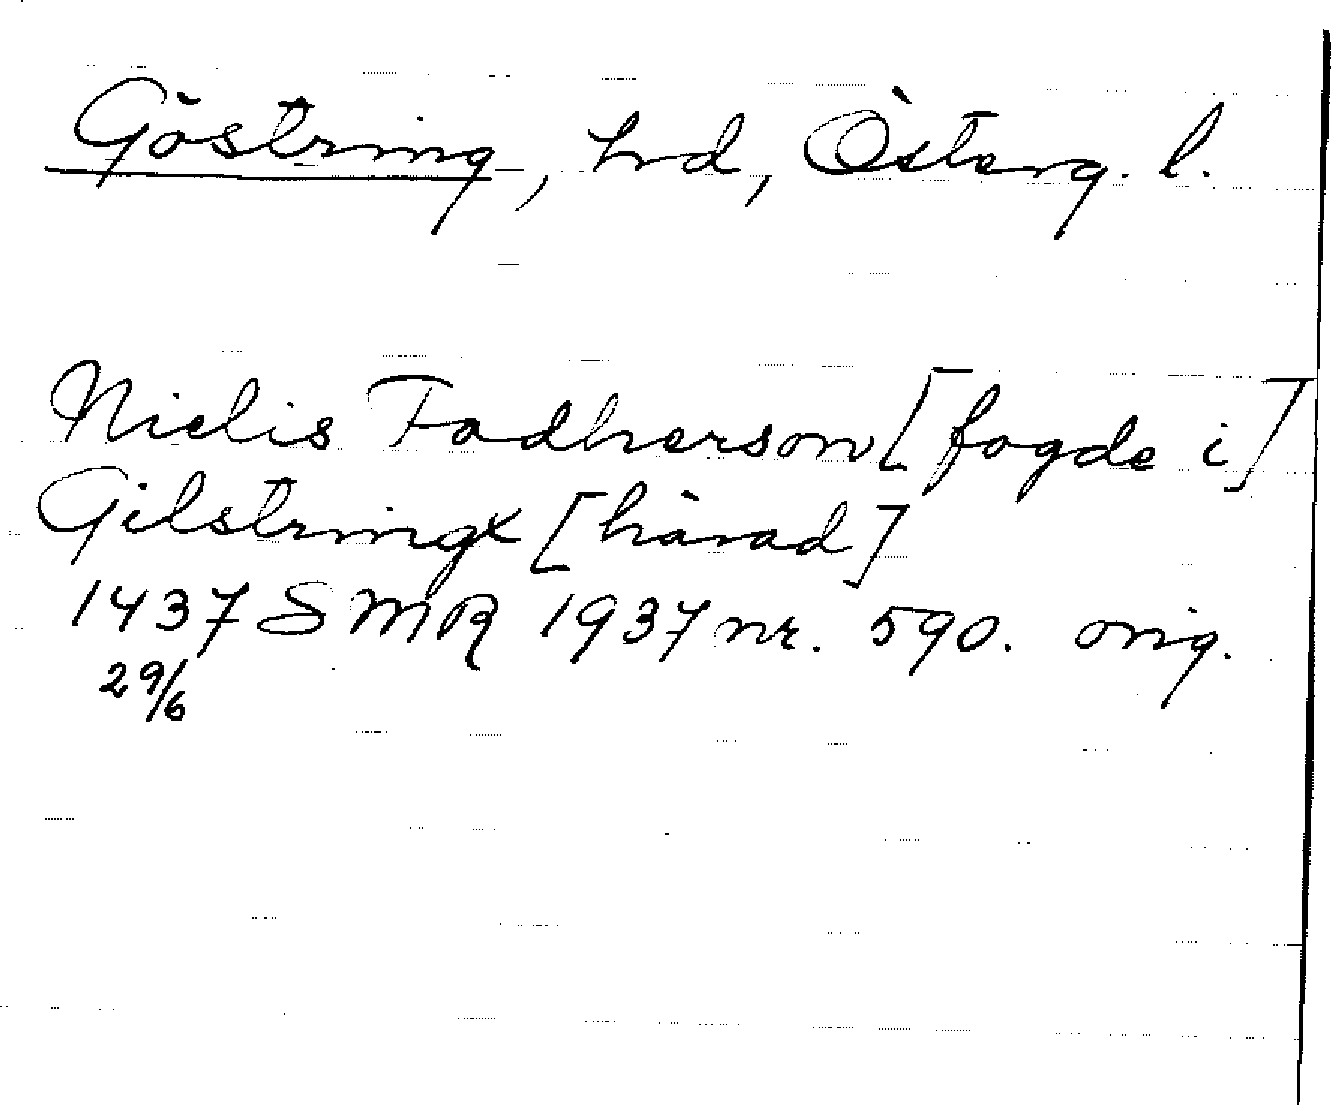 Göstring, hrd, Österg. l.
Nielis Fadherson [fogde i]
Gilstringx [härad]
1437 SMR 1937 nr. 590. orig.
29/6